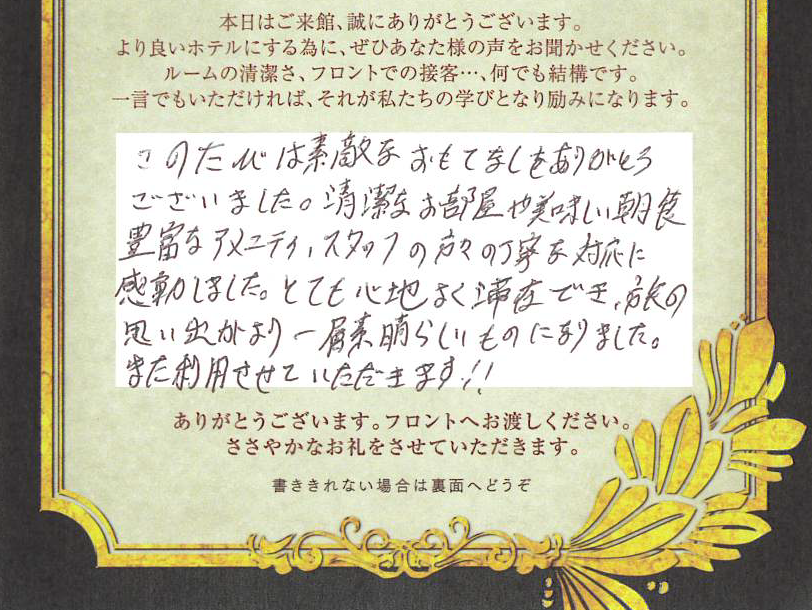 本日はご来館、誠にありがとうございます。
より良いホテルにする為に、ぜひあなた様の声をお聞かせください。
ルームの清潔さ、フロントでの接客…、何でも結構です。
一言でもいただければ、それが私たちの学びとなり励みになります。
このたびは素敵なおもてなしをありがとう
ございました。清潔なお部屋や美味しい朝食
豊富なアメニティ、スタッフの方々の丁寧な対応に
感動しました。とても心地よく滞在でき、旅の
思い出がより一層素晴らしいものになりました。
また利用させていただきます!!
ありがとうございます。フロントへお渡しください。
ささやかなお礼をさせていただきます。
書ききれない場合は裏面へどうぞ